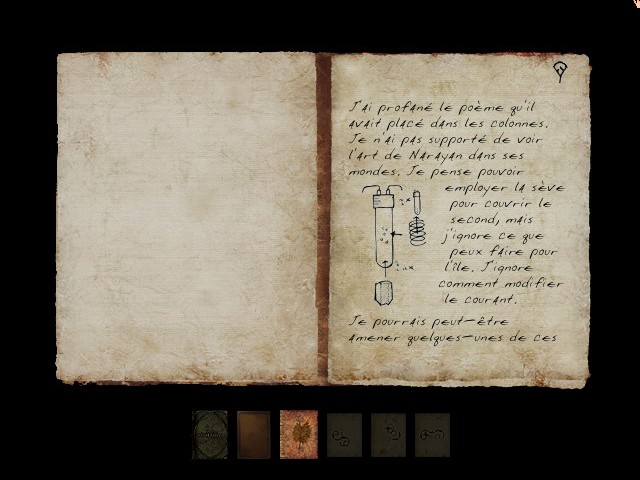 J'ai profané le poème qu'il
avait placé dans les colonnes.
Je n'ai pas supporté de voir
l'art de Narayan dans ses
mondes. Je pense pouvoir
employer la sève
pour couvrir le
second, mais
j'ignore ce que
peux faire pour
l'île. J'ignore
comment modifier
le courant.
Je pourrais peut-être
amener quelques-unes de ces